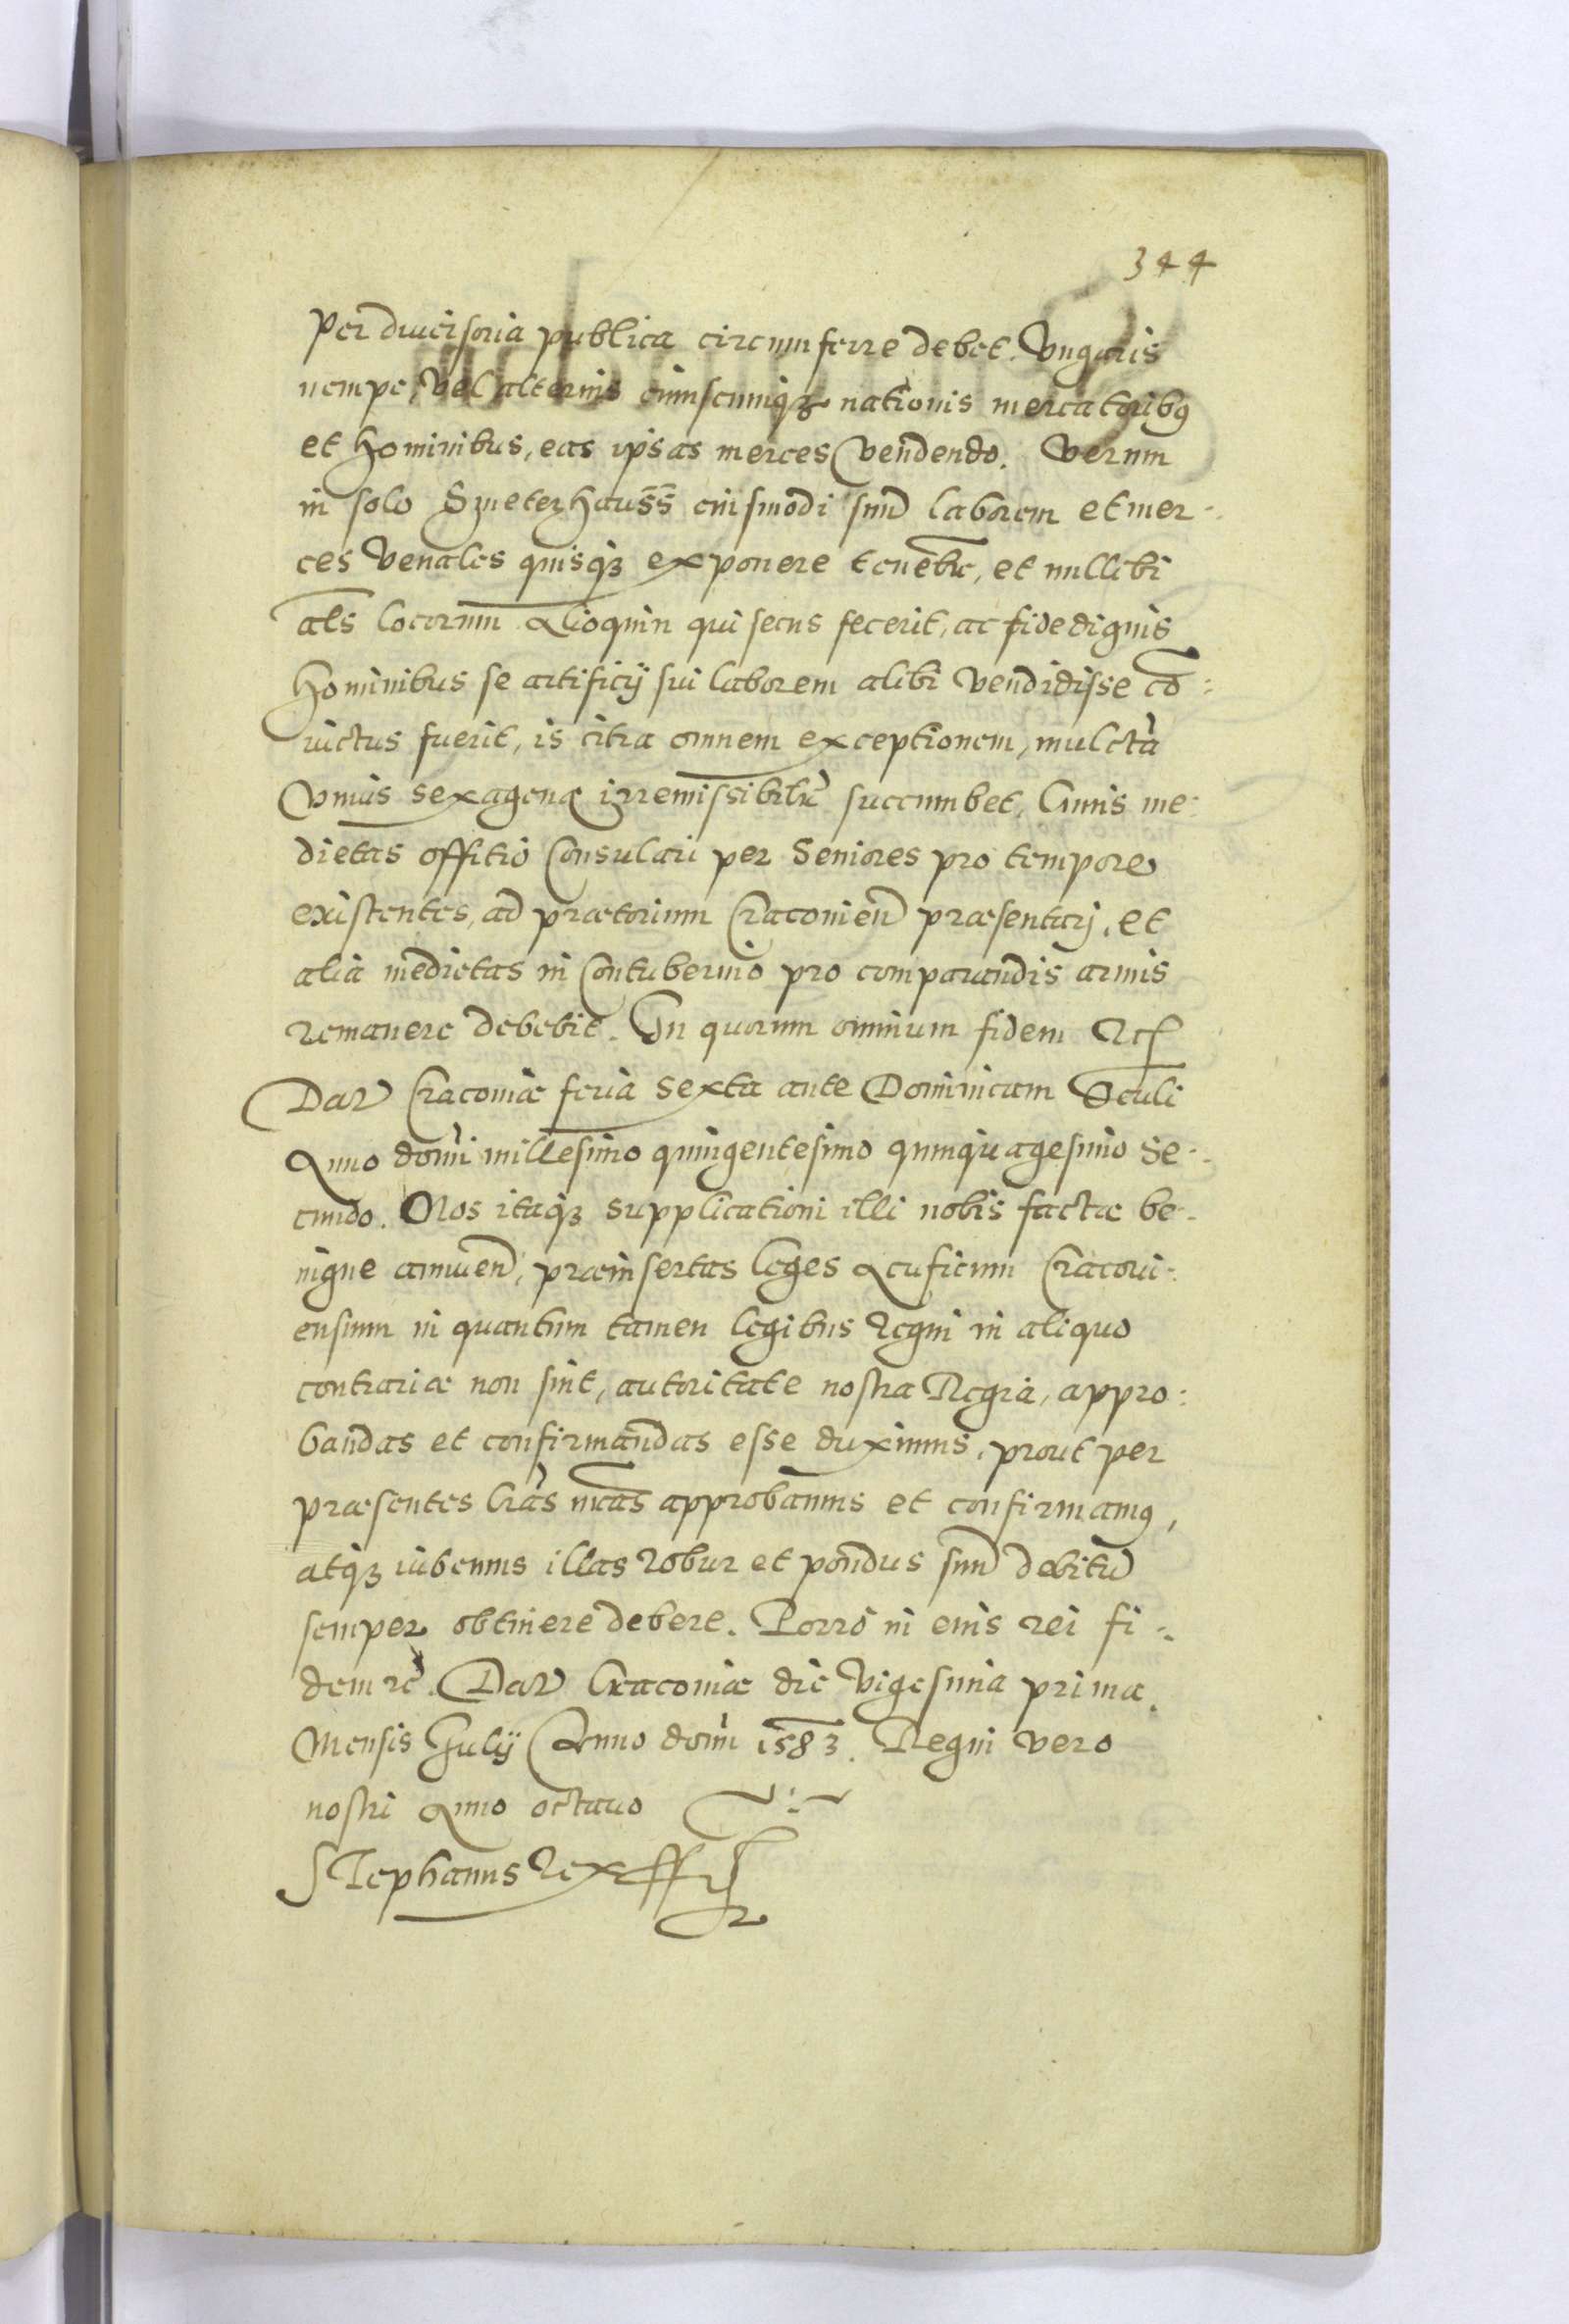 344
Per diuersoria publica circumferre debet. Vngaris
nempe, Vel alterius cuiuscunq3 nationis mercatorib9
et Hominibus, eas ipsas merces Vendendo. Verum
in solo eiusmodi suū laborem et mer-
ces Venales quisq3 exponere tenebr̄, et nullibi
al̄s locorum. Alioquin qui secus fecerit, ac fide dignis
Hominibus se artificij sui laborem alibi Vendidisse cō:
uictus fuerit, is citra omnem exceptionem, mulctà
Vnius sexagenę irremissibilr̄ succumbet. Cuius me-
dietas offitio Consulari per Seniores pro tempore
existentes, ad prætorium Cracouien̄ præsentari, et
alia medietas in Contubernio pro comparandis armis
remanere debebit. In quorum omnium fidem Rc̄
Dat̄ Cracouiæ feria Sexta ante Dominicam Oculi
Anno domi millesimo quingentesimo quinquagesimo Se-
cundo. Nos itaq3 supplicationi illi nobis factæ be-
nigne annuen̄, præinsertas leges Acuficum Cracoui-
ensium in quantum tamen legibus Regni in aliquo
contrariæ non sint, autoritate nostra Regia, appro:
bandas et confirmandas esse duximus, prout per
præsentes lr̄as nr̄as approbamus et confirmam9,
atq3 iubemus illas robur et pondus suū debitū
semper obtinere debere. Porrò in eius rei fi-
dem rc̄. Dat̄ Cracouiæ die Vigesima prima
Mensis Julij Anno domi 1583. Regni vero
nostri Anno octauo
Stephanus Rex ſſt